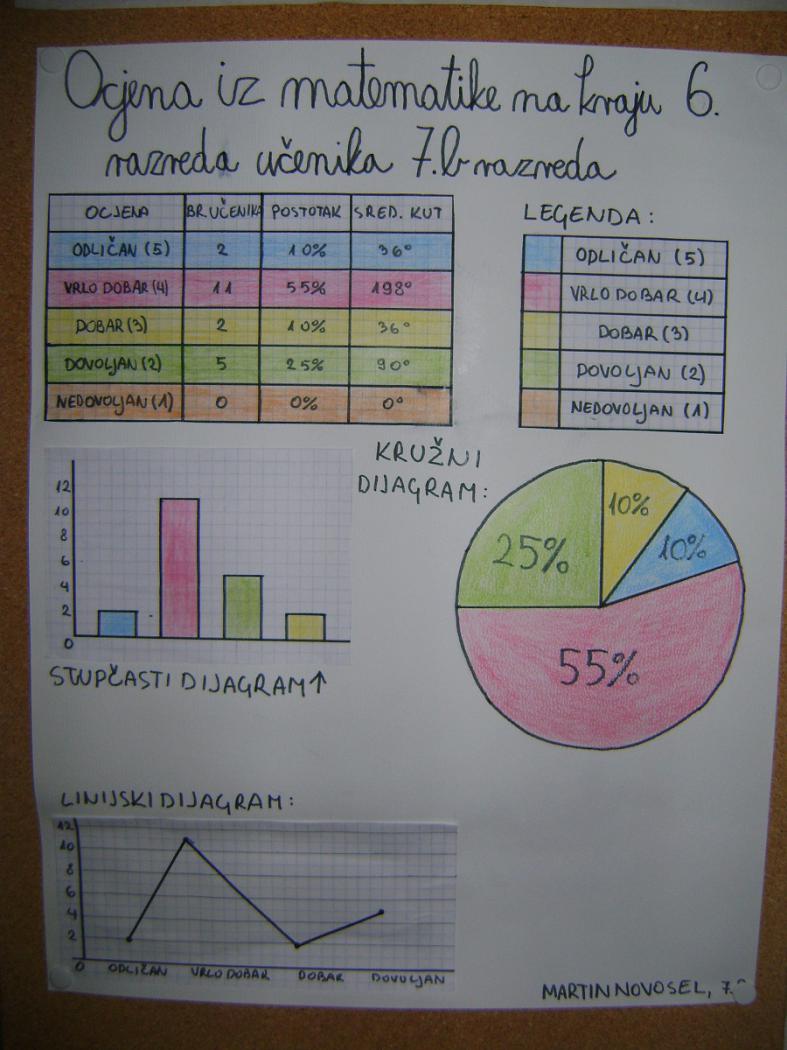 Ocjena iz matematike na kraju 6.
razreda učenika 7.b razreda
OCJENA BR.UČENIKA POSTOTAK SRED. KUT
ODLIČAN (5) 2 10% 36°
VRLO DOBAR (4) 11 55% 198°
DOBAR (3) 2 10% 36°
DOVOLJAN (2) 5 25% 90°
NEDOVOLJAN (1) 0 0% 0°
LEGENDA:
ODLIČAN (5)
VRLO DOBAR (4)
DOBAR (3)
DOVOLJAN (2)
NEDOVOLJAN (1)
12
10
8
6
4
2
0
STUPČASTI DIJAGRAM↑
KRUŽNI
DIJAGRAM:
10%
25%
10%
55%
LINIJSKI DIJAGRAM:
12
10
8
6
4
2
0 ODLIČAN VRLO DOBAR DOBAR DOVOLJAN
MARTIN NOVOSEL, 7.